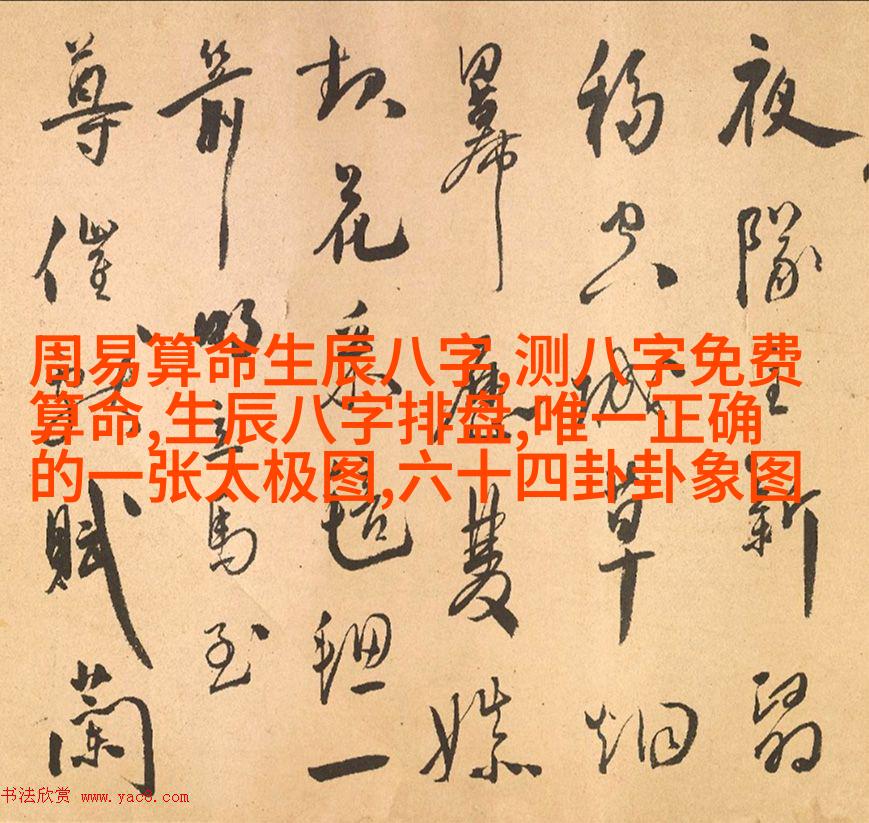 夜隊新
城草烟
幂歷雙
花一
箭馬至
尊催賦蘭
周易算命生辰八字,测八字免费
算命,生辰八字排盘,唯一正确
的一张太极图,六十四卦卦象图
书法欣赏 www.yac8.com